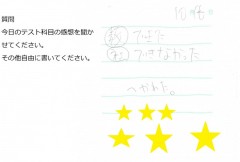 質問
今日のテスト科目の感想を聞か
せてください。
その他自由に書いてください。
できた
できなかった
つかれた。